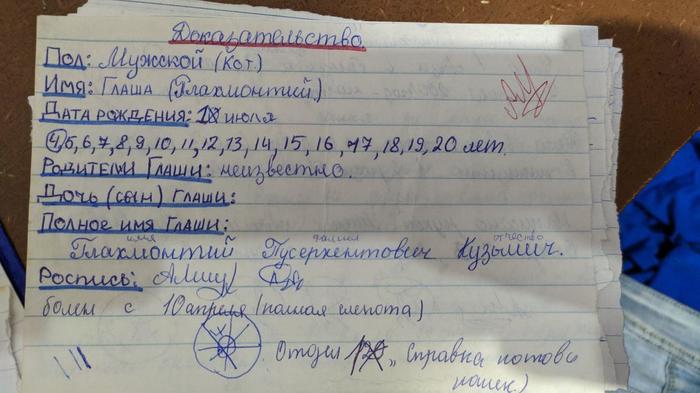 Доказательство
Пол: Мужской (Кот.)
Имя: Глаша (Глахмонтий.)
Дата рождения: 18 июля
4,5,6,7,8,9,10,11,12,13,14,15,16,17,18,19,20 лет.
Родители Глаши: неизвестно.
Дочь (сын) Глаши:
Полное имя Глаши:
имя фамилия отчество
Глахмонтий Гусерхентович Кузьмич.
Роспись:
болен с 10 апреля (полная слепота)
Отдел „Справка котовы
кошек.)